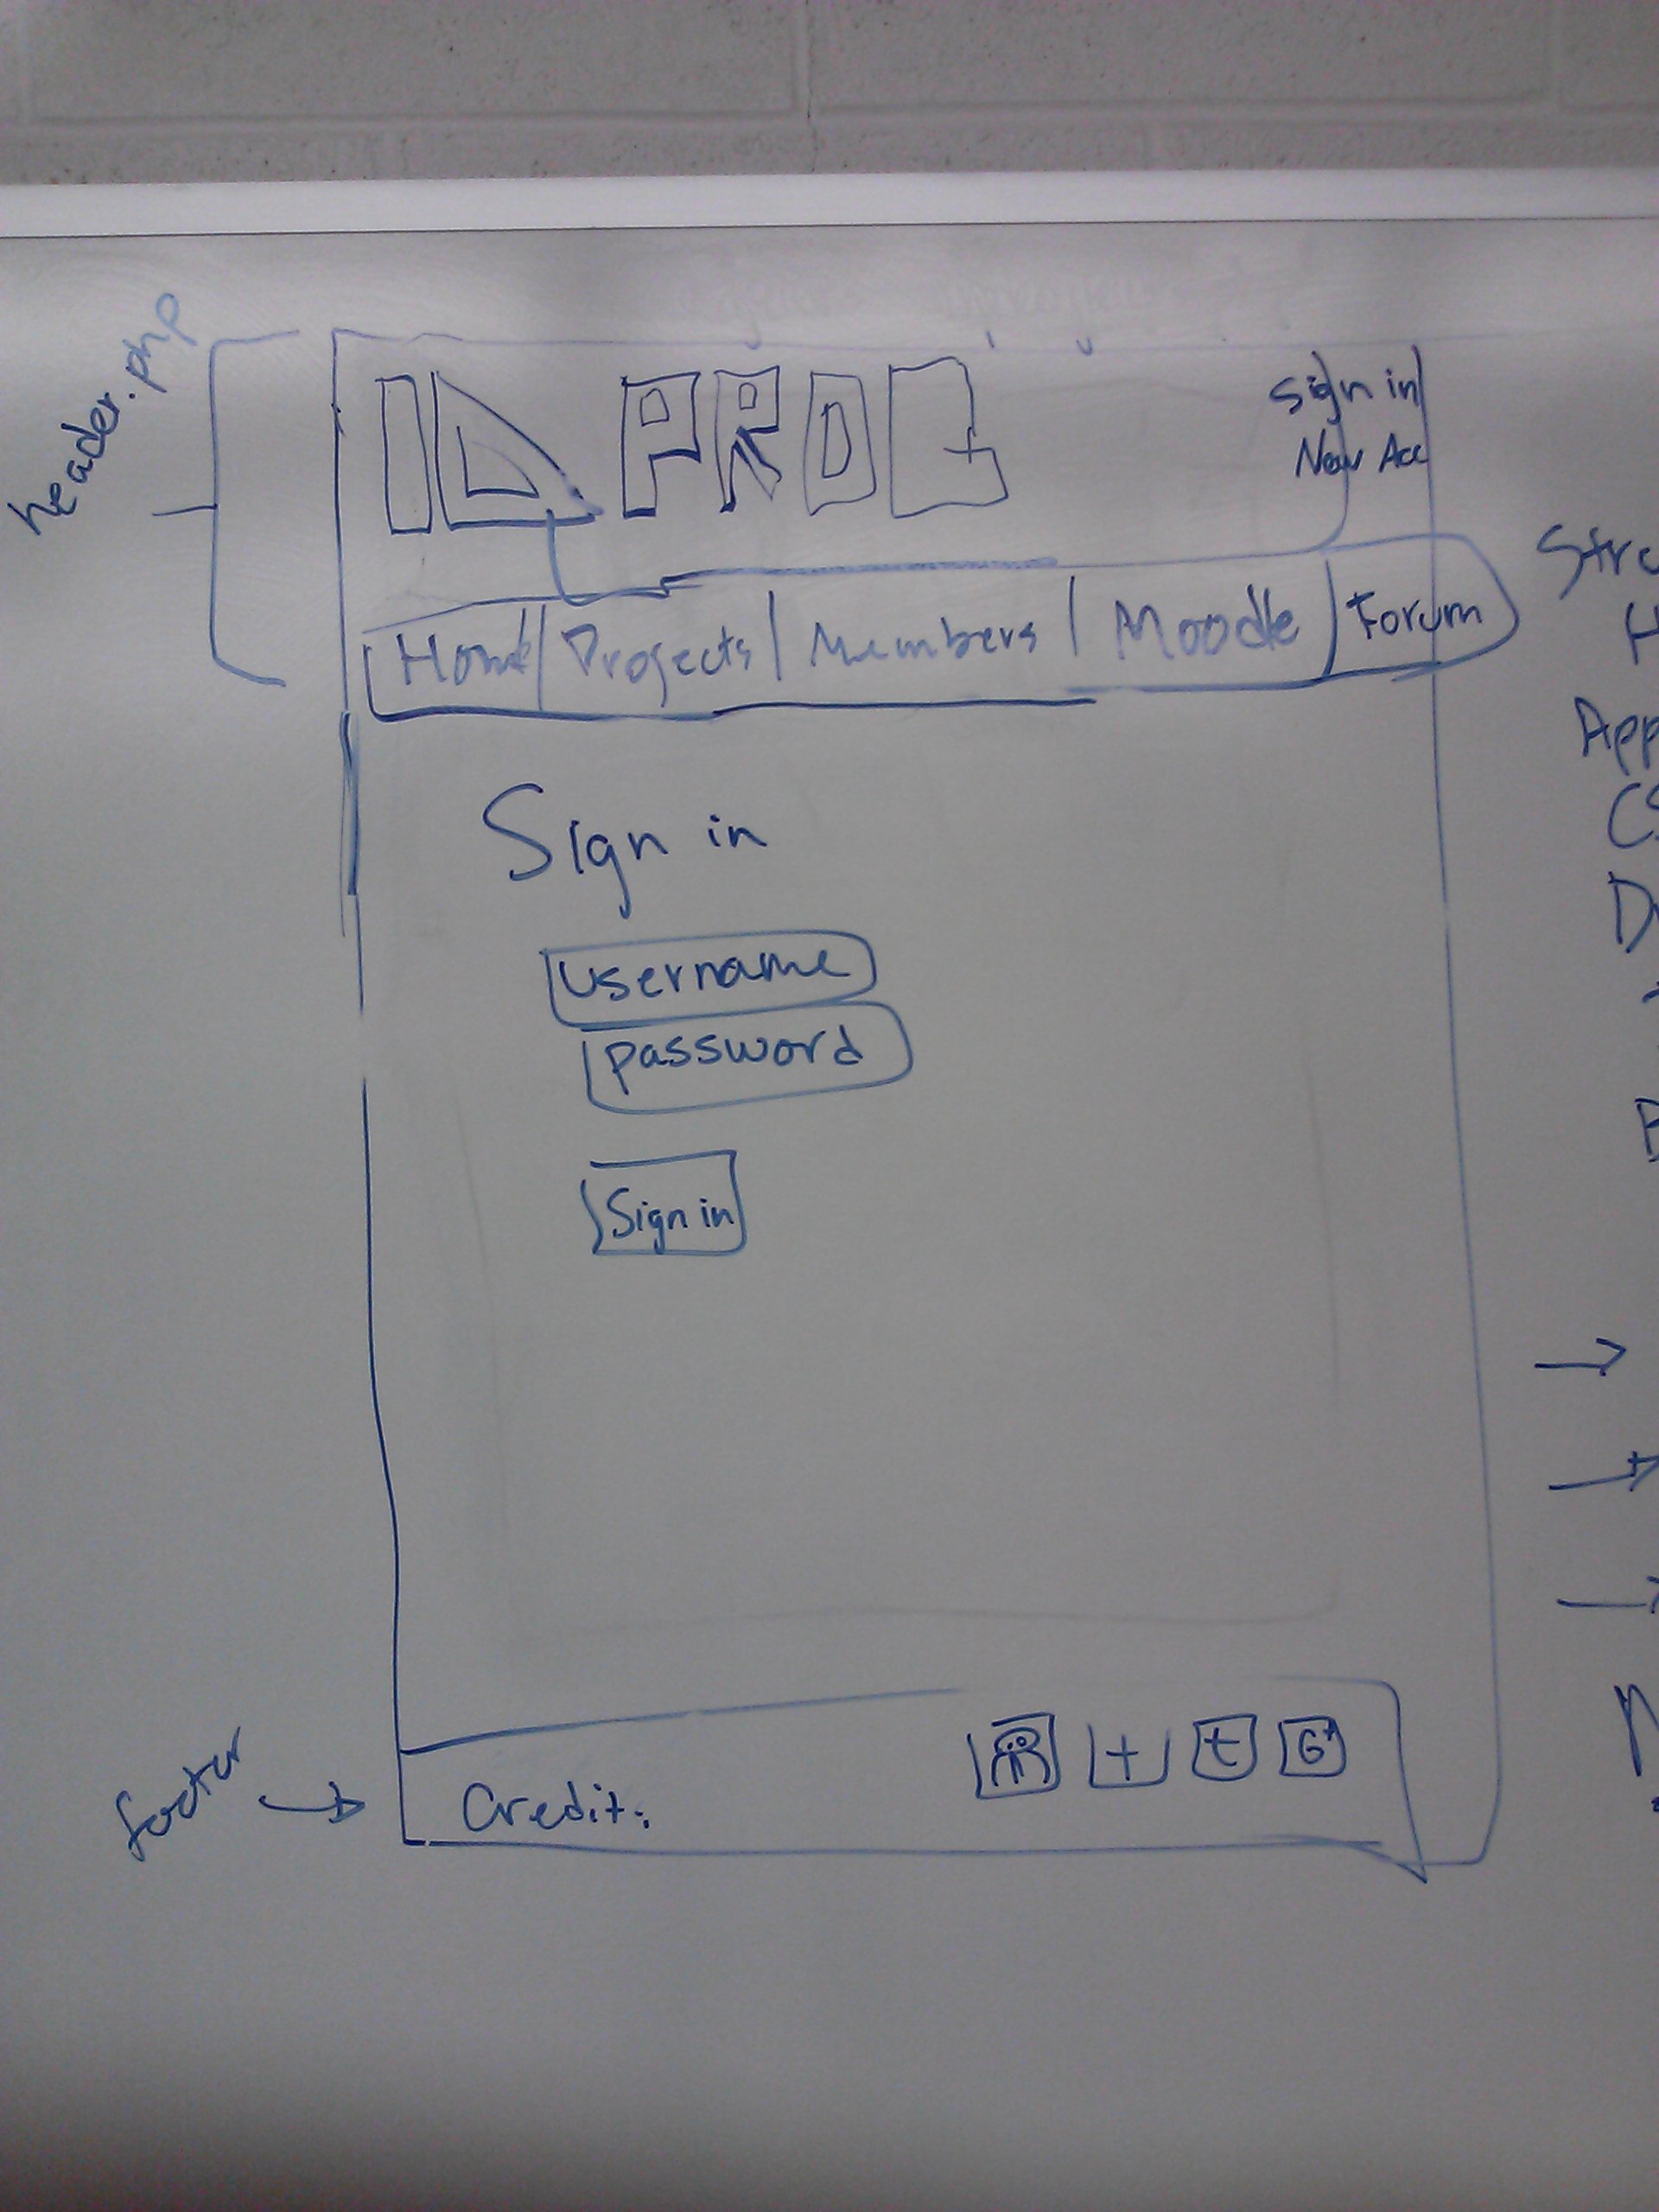 header.php
ID PROG
Sign in
New Acc
Home | Projects | Members | Moodle | Forum
Sign in
username
password
Sign in
Credit:
t G+
footer
Stru
H
App
CS
D